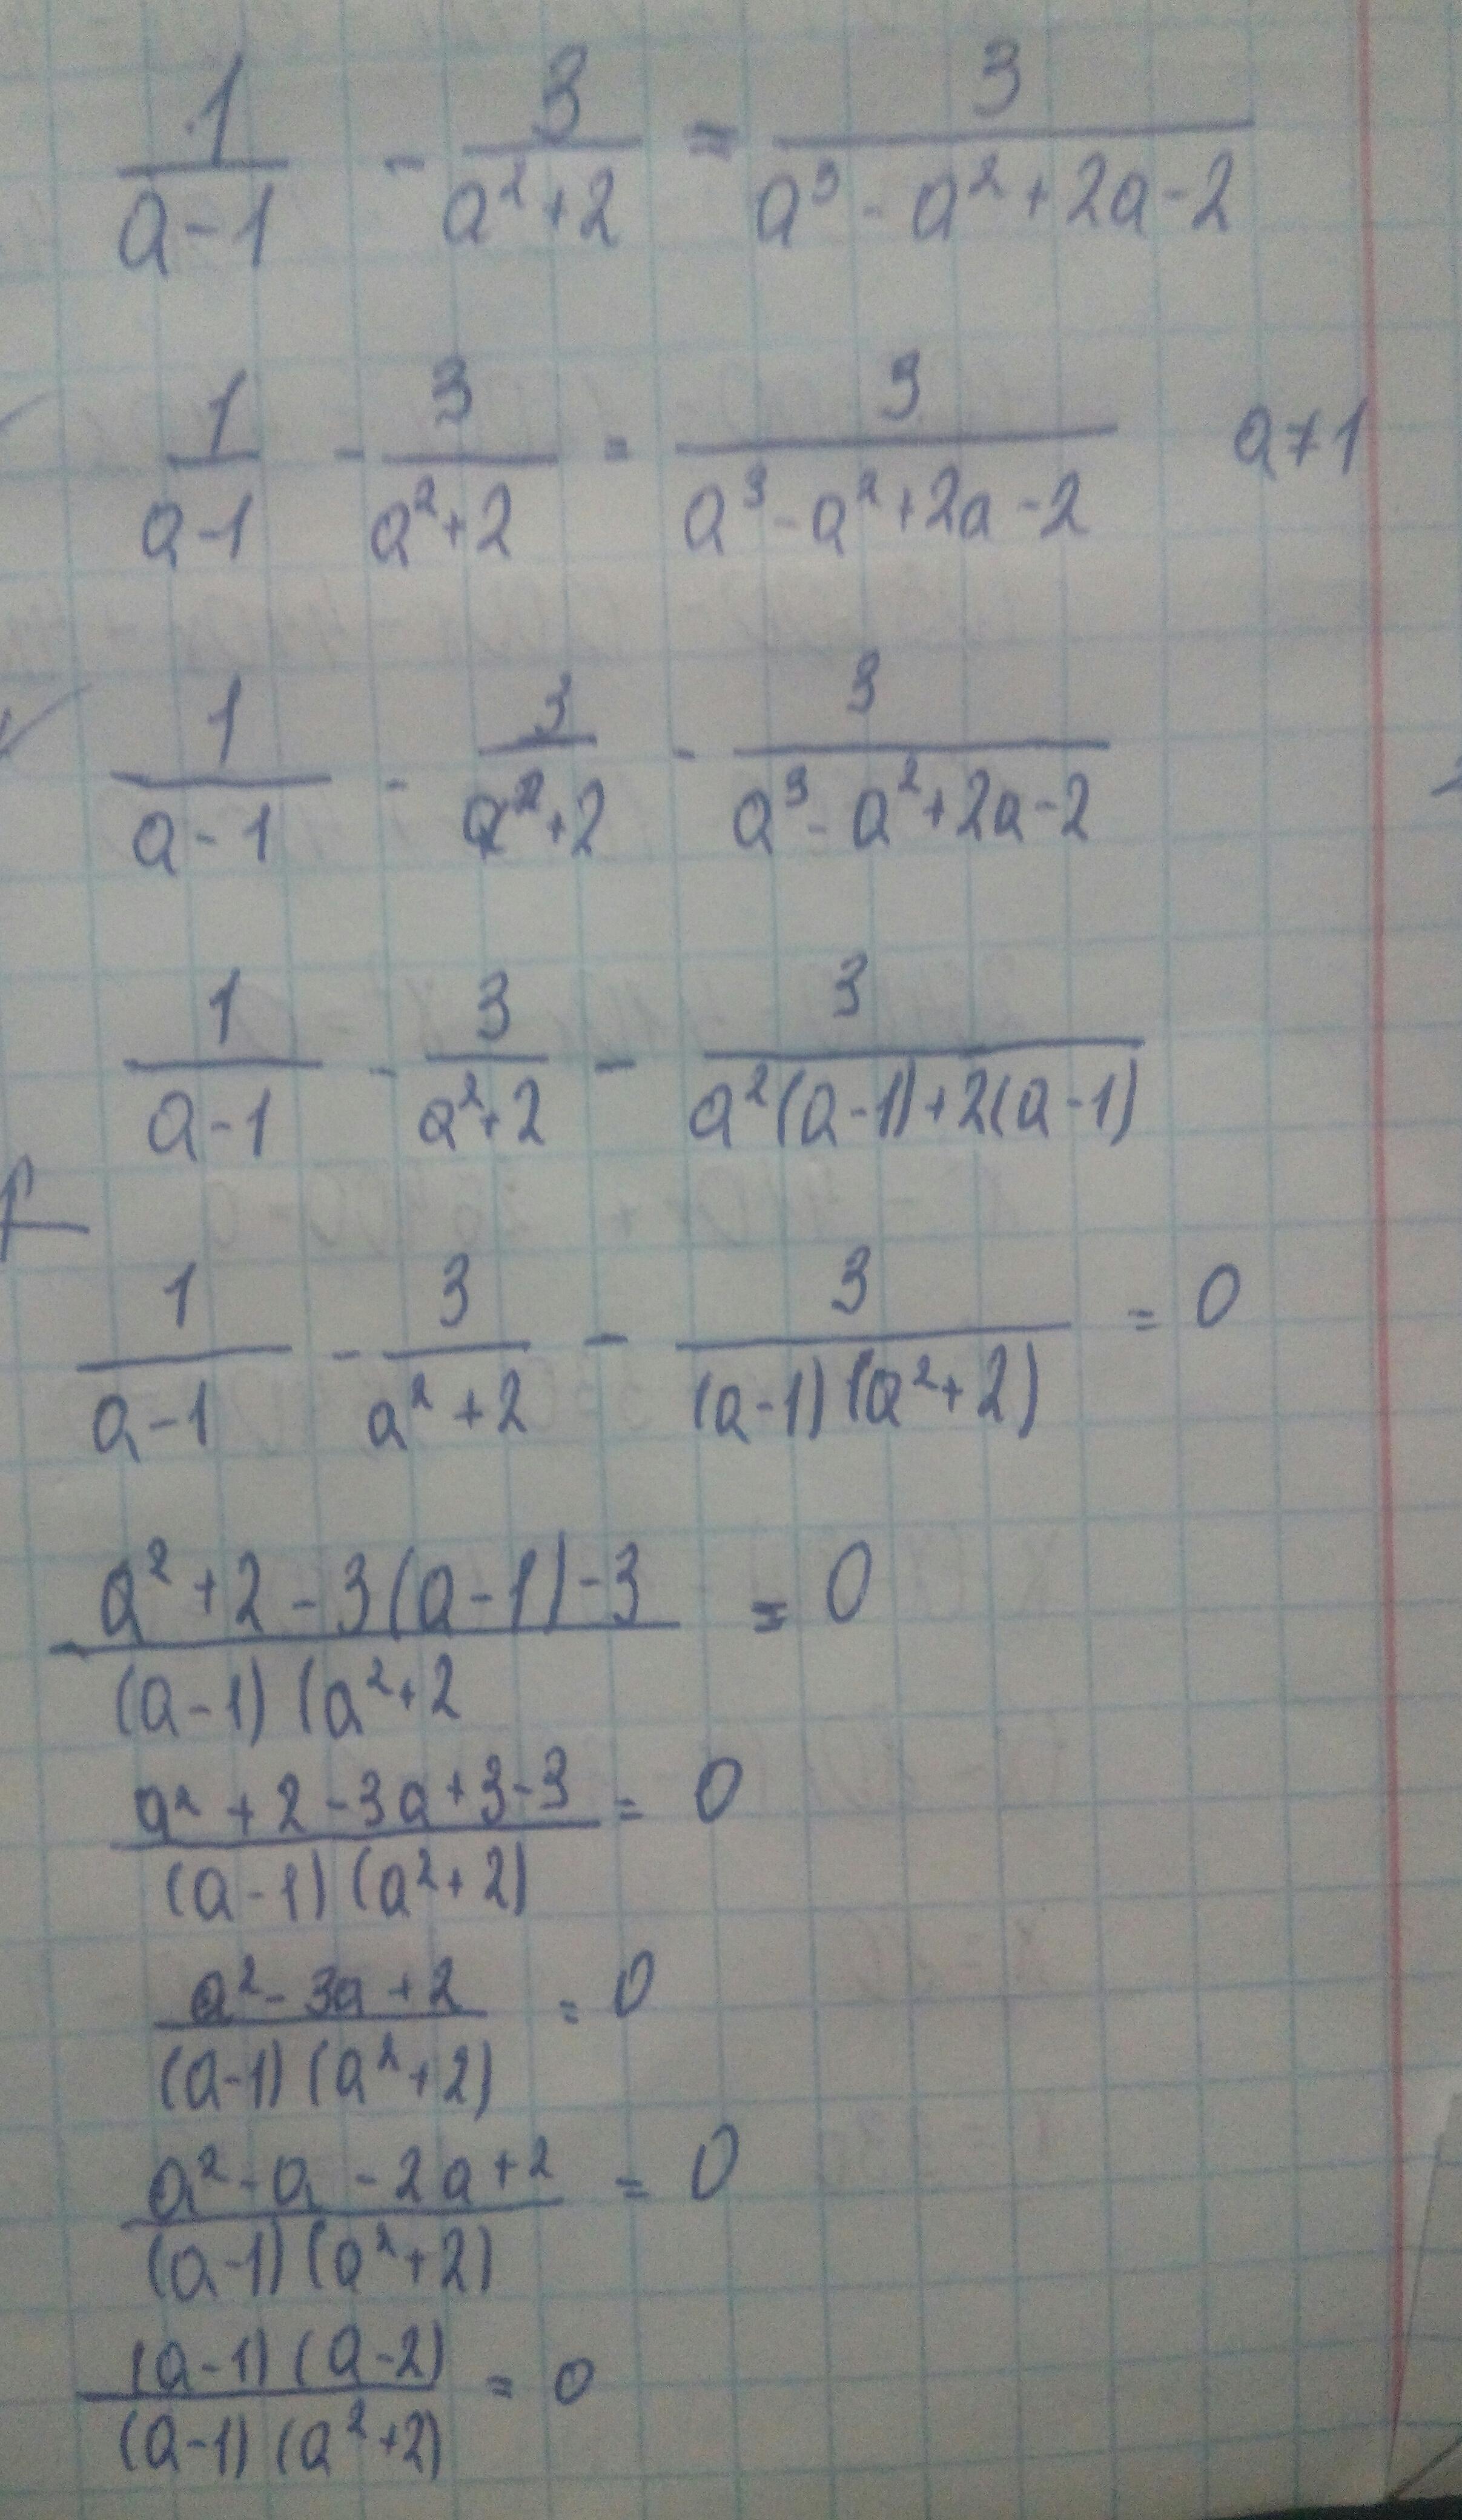 1/(a-1) - 3/(a²+2) = 3/(a³-a²+2a-2)
1/(a-1) - 3/(a²+2) = 3/(a³-a²+2a-2) a≠1
1/(a-1) - 3/(a²+2) - 3/(a³-a²+2a-2)
1/(a-1) - 3/(a²+2) - 3/(a²(a-1)+2(a-1))
1/(a-1) - 3/(a²+2) - 3/((a-1)(a²+2)) = 0
(a²+2-3(a-1)-3)/((a-1)(a²+2) = 0
(a²+2-3a+3-3)/((a-1)(a²+2)) = 0
(a²-3a+2)/((a-1)(a²+2)) = 0
(a²-a-2a+2)/((a-1)(a²+2)) = 0
((a-1)(a-2))/((a-1)(a²+2)) = 0